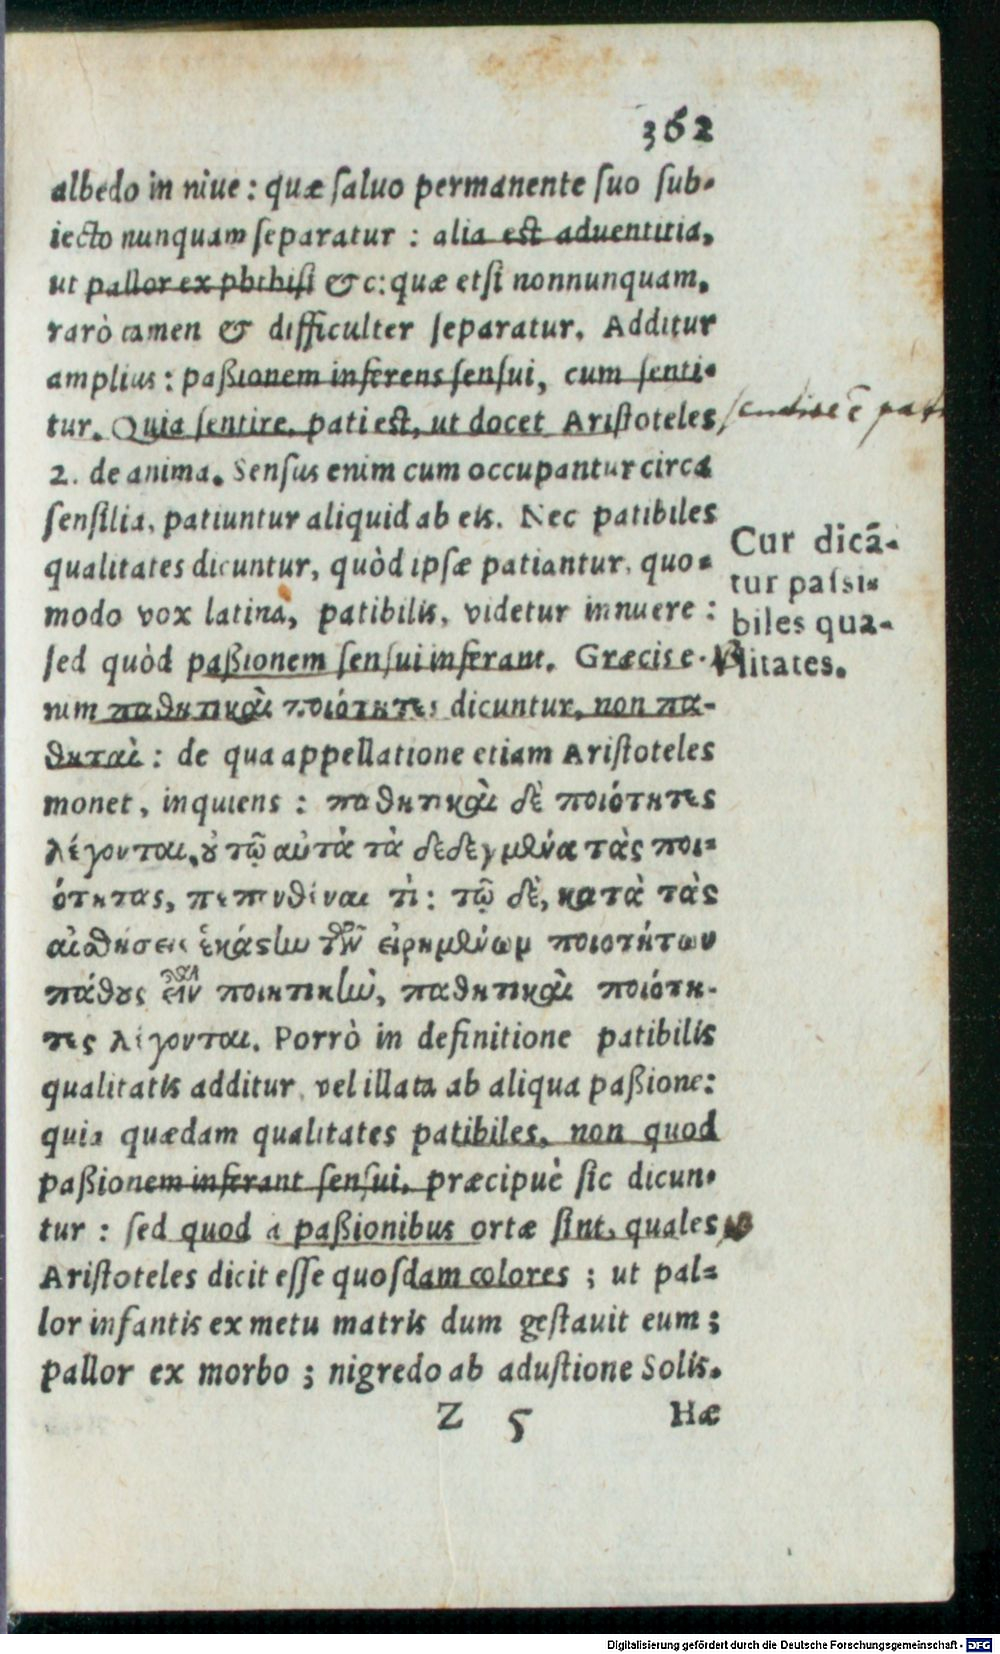 362
albedo in niue : quæ ſaluo permanente ſuo ſub-
iecto nunquam ſeparatur : alia est aduentitia,
ut pallor ex phthiſi & c: quæ etſi nonnunquam,
rarò tamen & difficulter ſeparatur. Additur
amplius : paßionem inferens ſenſui, cum ſenti-
tur. Quia ſentire, pati est, ut docet Ariſtoteles
ſentire ē pati
2. de anima. Senſus enim cum occupantur circa
ſenſilia, patiuntur aliquid ab eis. Nec patibiles
qualitates dicuntur, quòd ipſæ patiantur, quo-
modo vox latina, patibilis, videtur innuere :
ſed quòd paßionem ſenſui inferant. Græcis e-
Cur dicā-
tur paſsi-
biles qua-
litates.
nim παθητικαὶ ποιότητες dicuntur, non πα-
θηταὶ : de qua appellatione etiam Ariſtoteles
monet, inquiens : παθητικαὶ δὲ ποιότητες
λέγονται, ȣ τῷ αὐτὰ τὰ δεδεγμένα τὰς ποι-
ότητας, πεπονθέναι τὶ : τῷ δὲ, κατὰ τὰς
αἰσθήσεις ἑκάστην τῶν εἰρημένωμ ποιοτήτων
πάθȣς εἶναι ποιητικὴν, παθητικαὶ ποιότη-
τες λέγονται. Porrò in definitione patibilis
qualitatis additur, vel illata ab aliqua paßione:
quia quædam qualitates patibiles, non quod
paßionem inferant ſenſui, præcipuè ſic dicun-
tur : ſed quod a paßionibus ortæ ſint, quales
Ariſtoteles dicit eſſe quoſdam colores ; ut pal-
lor infantis ex metu matris dum geſtauit eum ;
pallor ex morbo ; nigredo ab aduſtione Solis.
Z 5 Hæ
Digitalisierung gefördert durch die Deutsche Forschungsgemeinschaft - DFG